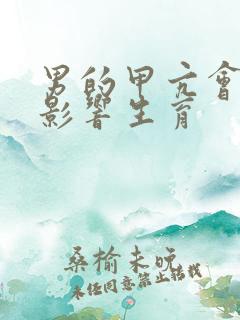 男的甲亢會
影響生育
桑榆未晚
未经同意禁止转载